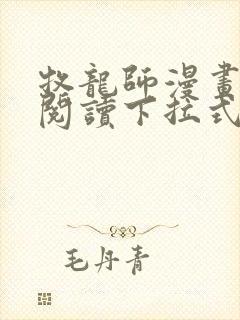 牧龍師漫畫
閱讀下拉式
毛丹青